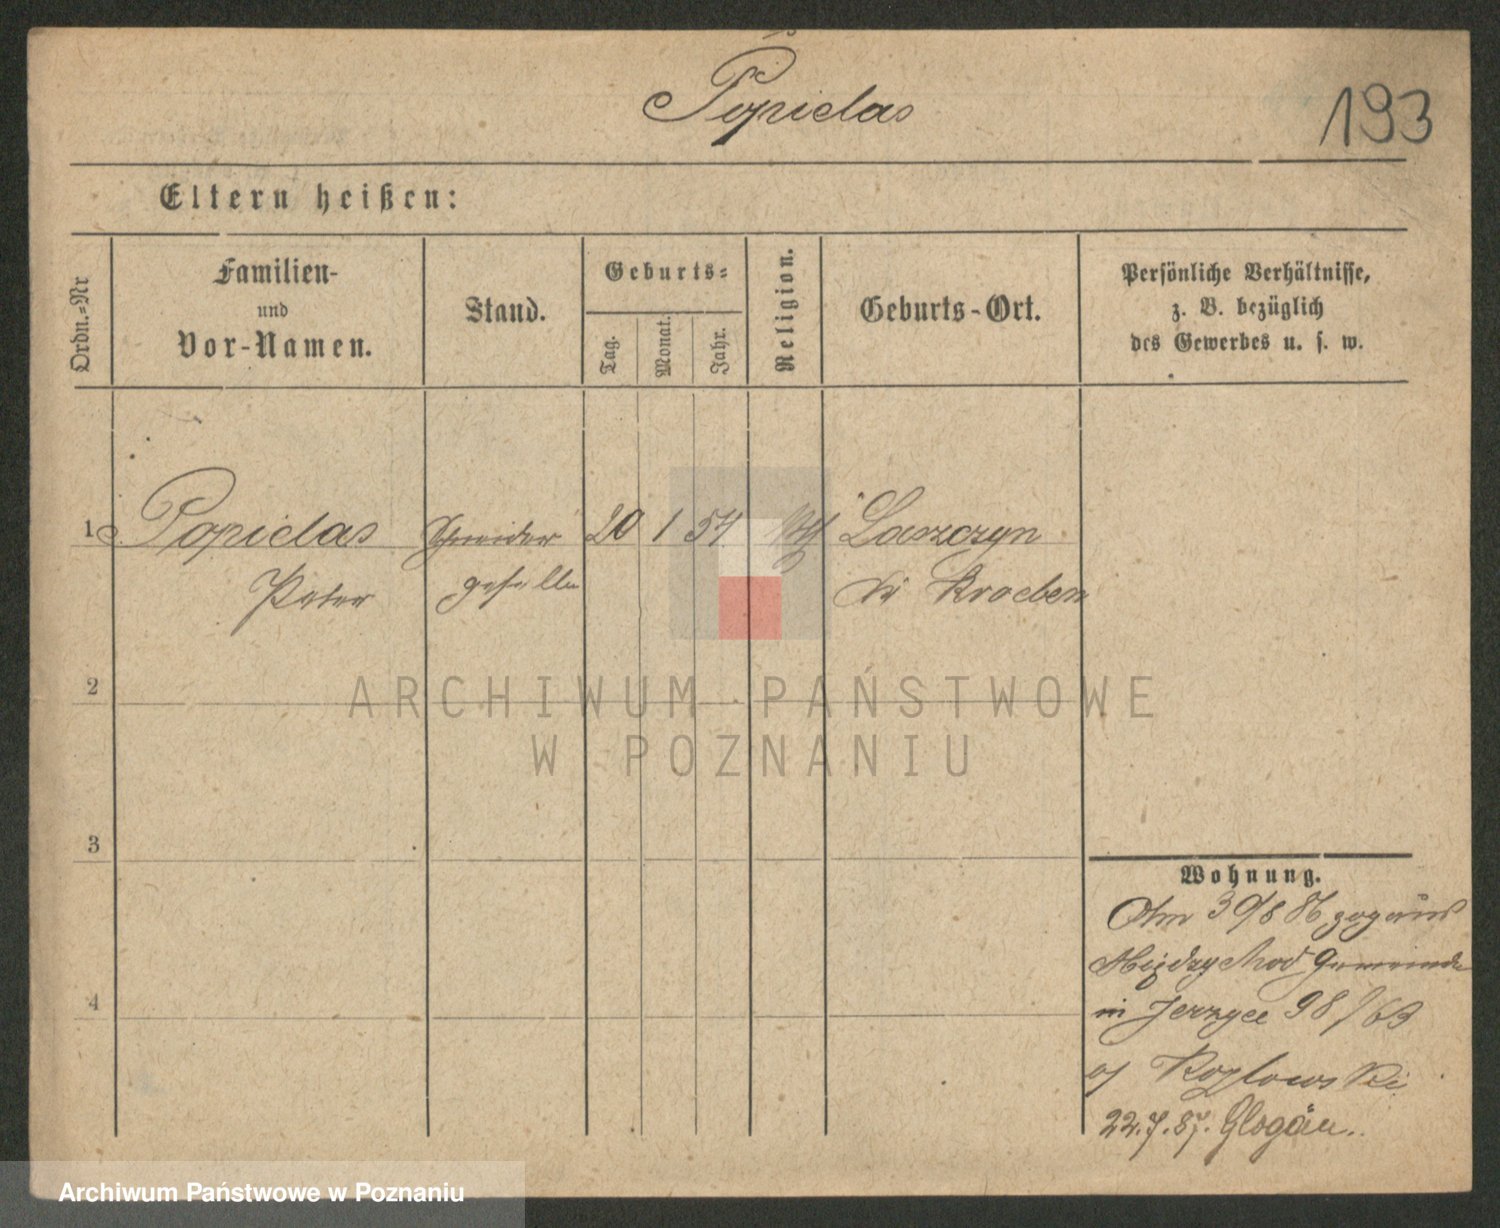 Popielas
193
Eltern heißen:
Ordn.-Nr
Familien-
und
Vor-Namen.
Stand.
Geburts-
Tag.
Monat.
Jahr.
Religion.
Geburts-Ort.
Persönliche Verhältnisse,
z. B. bezüglich
des Gewerbes u. s. w.
1 Popielas Schneider 20 1 54 Laszczyn
Peter geselle Kroeben
2
3
4
Wohnung.
Am 30/8 86 zog aus
Międzychod Gemeinde
in Jerzyce 98/63
Kozlowski
22.7.87. Glogau.
ARCHIWUM PAŃSTWOWE
W POZNANIU
Archiwum Państwowe w Poznaniu